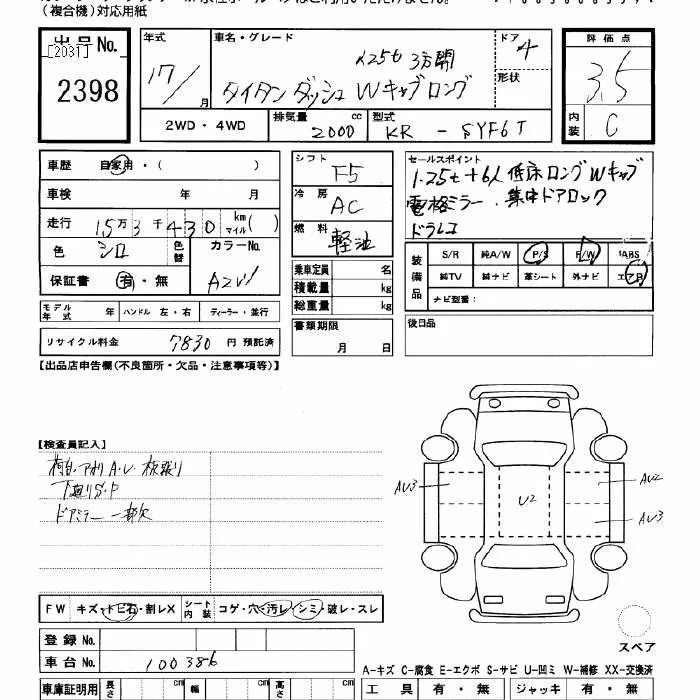 (複合機)対応用紙
出品No.
[2031]
2398
年式
17/
月
車名・グレード
1.25t 3方開
タイタン ダッシュ Wキャブロング
ドア
4
形状
評価点
3.5
内装
C
2WD・4WD
排気量
2000 cc
型式
KR - SYF6T
車歴 自家用・( )
車検 年 月
走行 15万3千430 km マイル( )
色 シロ 色替
カラーNo.
A2W
保証書 有・無
モデル年式 年 ハンドル 左・右 ディーラー・並行
リサイクル料金 7830 円 預託済
シフト
F5
冷房
AC
燃料
軽油
乗車定員 名
積載量 kg
総重量 kg
書類期限
月 日
セールスポイント
1.25t+6人 低床ロングWキャブ
電格ミラー. 集中ドアロック
ドラレコ
装備品
S/R 純A/W P/S P/W ABS
純TV 純ナビ 革シート 外ナビ エアB
ナビ型番:
後日品
【出品店申告欄(不良箇所・欠品・注意事項等)】
【検査員記入】
荷台・アオリ A.U. 板張り
下廻りS.P
ドアミラー 一部欠
AU3
U2
AU2
AU3
FW キズ・トビ石・割レX シート内装 コゲ・穴・汚レ・シミ・破レ・スレ
登録No.
車台No. 100386
スペア
A-キズ C-腐食 E-エクボ S-サビ U-凹ミ W-補修 XX-交換済
車庫証明用 長さ cm 幅 cm 高さ cm
工具 有・無 ジャッキ 有・無